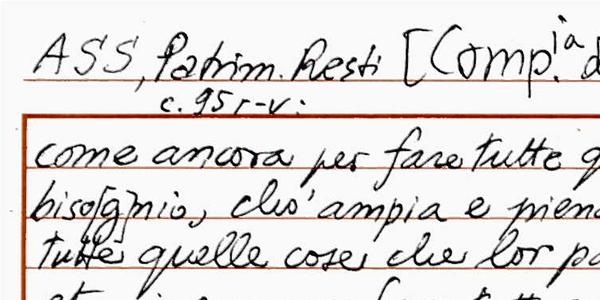 ASS, Patrim. Resti [Comp.ia d
c. 95 r-v:
come ancora per fare tutte q
biso[g]nio, cho' ampia e pien
tutte quelle cose che lor po